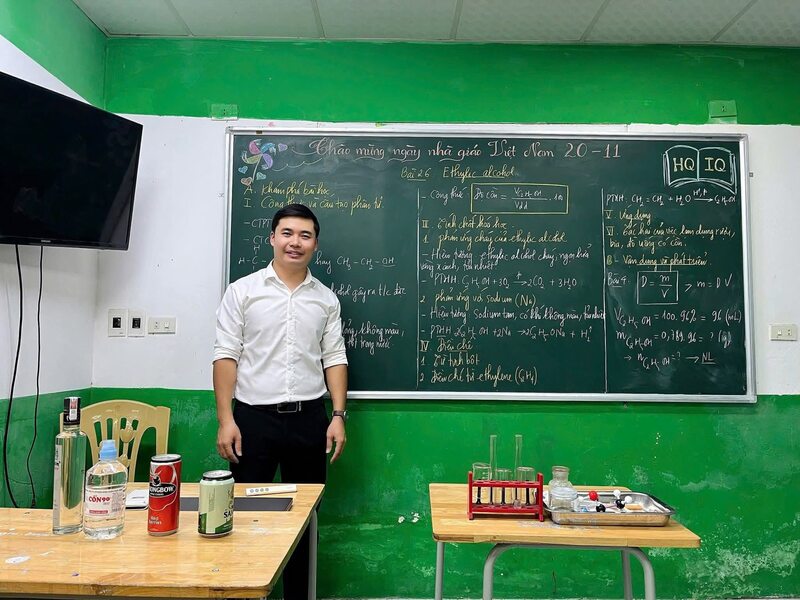 Chào mừng ngày nhà giáo Việt Nam 20-11
HQ IQ
Bài 26 Ethylic alcohol.
A. Khám phá bài học
I. Công thức và cấu tạo phân tử
- CTPT
- CTC
H-C
hay CH₃-CH₂-OH
alcohol gây ra t/c đặc
lỏng, không màu,
tốt trong nước
- Công thức Độ cồn = V C₂H₅OH / Vdd . 100
III. Tính chất hóa học.
1 phản ứng cháy của ethylic alcohol
- Hiện tượng: ethylic alcohol cháy, ngọn lửa
xanh, tỏa nhiệt
- PTHH: C₂H₅OH + 3O₂ → 2CO₂ + 3H₂O
2 phản ứng với sodium (Na)
- Hiện tượng: Sodium tan, có khí không màu, tỏa nhiệt
- PTHH 2C₂H₅OH + 2Na → 2C₂H₅ONa + H₂↑
IV Điều chế
1 Từ tinh bột
2 Điều chế từ ethylene (C₂H₄)
PTHH: CH₂=CH₂ + H₂O → C₂H₅OH
V. Ứng dụng
VI. Tác hại của việc lạm dụng rượu,
bia, đồ uống có cồn.
B - Vận dụng và phát triển
Bài 4: D = m/V → m = D.V
V C₂H₅OH = 100.96% = 96 (mL)
m C₂H₅OH = 0,789.96 = ? (g)
→ n C₂H₅OH = ? → NL
CỒN 90°